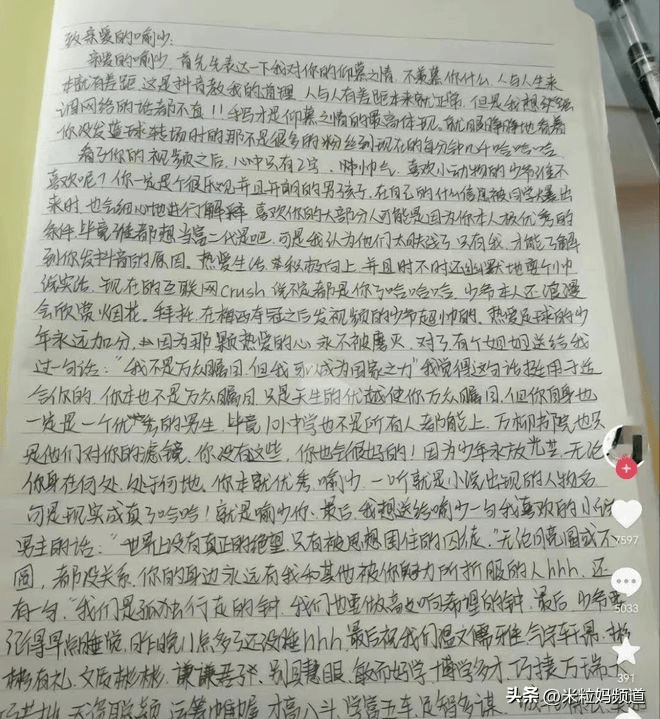 致亲爱的喻少:
亲爱的喻少,首先先表达一下我对你的仰慕之情,不羡慕你什么,人与人生来
本就有差距,这是抖音教我的道理,人与人有差距本来就正常,但是我想强
调网络的话都不真!!手写才是仰慕之情的最高体现。就眼睁睁地看着
你没发篮球转场时的那不是很多的粉丝到现在的每分钟几千哈哈哈
看了你的视频之后,心中只有2字,帅帅气,喜欢小动物的少年谁不
喜欢呢?你一定是个很乐观并且开朗的男孩子,在自己的什么信息被同学爆出
来时,也会细心地进行解释,喜欢你的大部分人可能是因为你本人极优秀的
条件,毕竟谁都想当富二代是吧,可是我认为他们太肤浅了,只有我,才能了解
到你发抖音的原因。热爱生活,积极向上,并且时不时还幽默地整个帅
活,现在的互联网crush说不定都是你了哈哈哈,少爷本人还浪漫
会欣赏烟花。拜托,在梅西夺冠之后发视频的少爷超帅的,热爱足球的少
年永远加分,因为那颗热爱的心永不被磨灭,对了有个姐姐送给我
过一句话:“我不是万众瞩目,但我可以成为国家之力”我觉得这句话挺用于送
给你的,你本也不是万众瞩目,只是天生的优越使你万众瞩目,但你自身也
一定是一个优秀的男生,毕竟101中学也不是所有人都能上,万柳书院也只
是他们对你的滤镜,你没有这些,你也会很好的!因为少年永放光芒,无论
你身在何处,处于何地,你本就优秀,喻少,一听就是小说出现的人物名
句是现实成真了哈哈!就是喻少你、最后,我想送给喻少一句我喜欢的小说
男主的话:“世界上没有真正的绝望,只有被思想困住的囚徒。”无论月亮圆或不
圆,都没关系,你的身边永远有我和其他被你努力所折服的人hhh,还
有一句“我们是孤独行走的钟,我们也要做高处响希望的钟,最后,少爷要
记得早点睡觉,昨晚11点多了还没睡hhh,最后祝我们恩又儒雅,气宇轩昂,彬
彬有礼,文质彬彬,谦谦君子,别具慧眼,敏而好学,博学多才,巧捷万端,大
智若拙,天资聪颖,运筹帷幄,才高八斗,学富五车,足智多谋
7597
5033
391
头条 @米粒妈频道